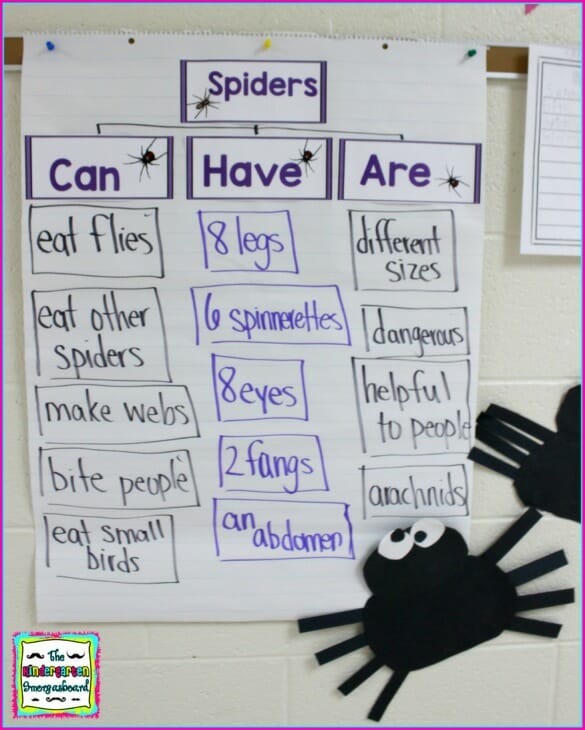 Spiders
Can
Have
Are
eat flies
eat other
spiders
make webs
bite people
eat small
birds
8 legs
6 spinnerettes
8 eyes
2 fangs
an
abdomen
different
sizes
dangerous
helpful
to people
arachnids
The
Kindergarten
Smorgasboard